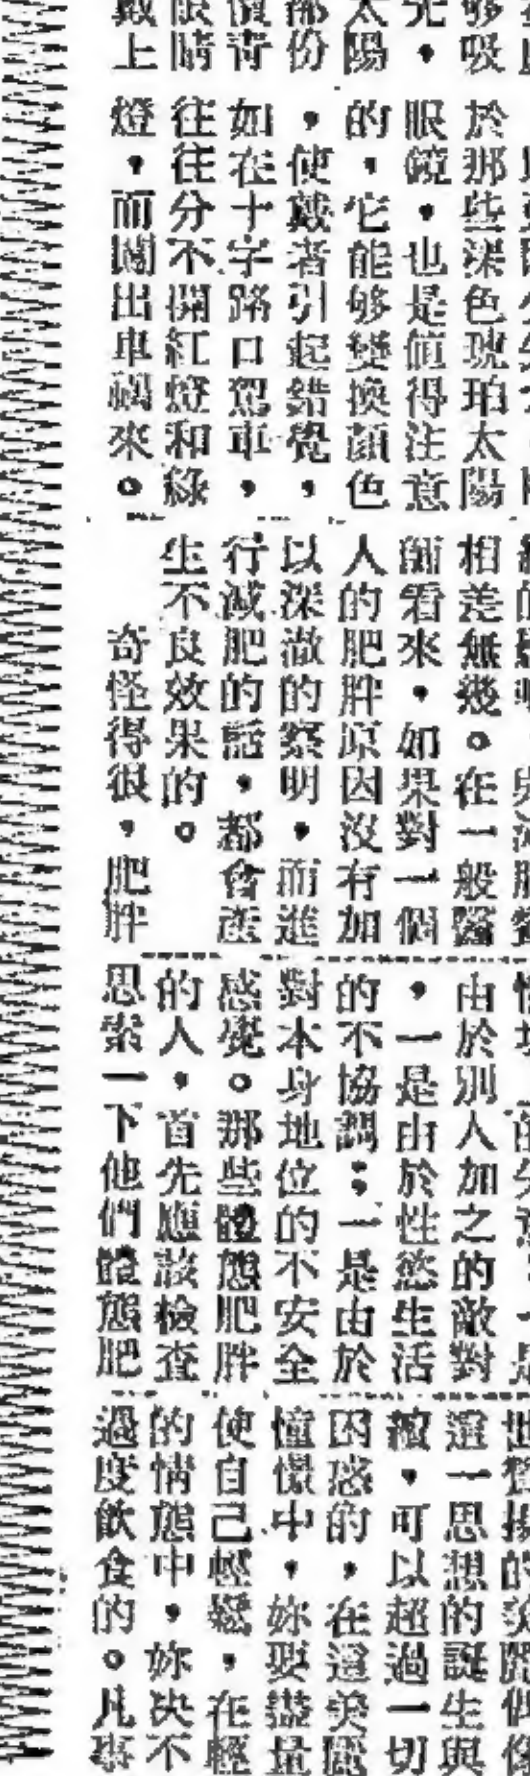 够吸
光，
太陽
部份
慣青
眼睛
戴上
於那些深色琥珀太陽
眼鏡，也是值得注意
的，它能够變換顏色
，使戴者引起錯覺，
如在十字路口駕車，
往往分不開紅燈和綠
燈，而闖出車禍來。
相差無幾。在一般醫
師看來，如果對一個
人的肥胖原因沒有加
以深澈的察明，而進
行減肥的話，都會產
生不良效果的。
奇怪得很，肥胖
由於別人加之的敵對
，一是由於性慾生活
的不協調；一是由於
對本身地位的不安全
感覺。那些體態肥胖
的人，首先應該檢查
思索一下他們體態肥
這一思想的誕生與
，可以超過一切
困惑的，在這美麗
憧憬中，妳要盡量
使自己輕鬆，在輕
的情態中，妳決不
過度飲食的。凡事